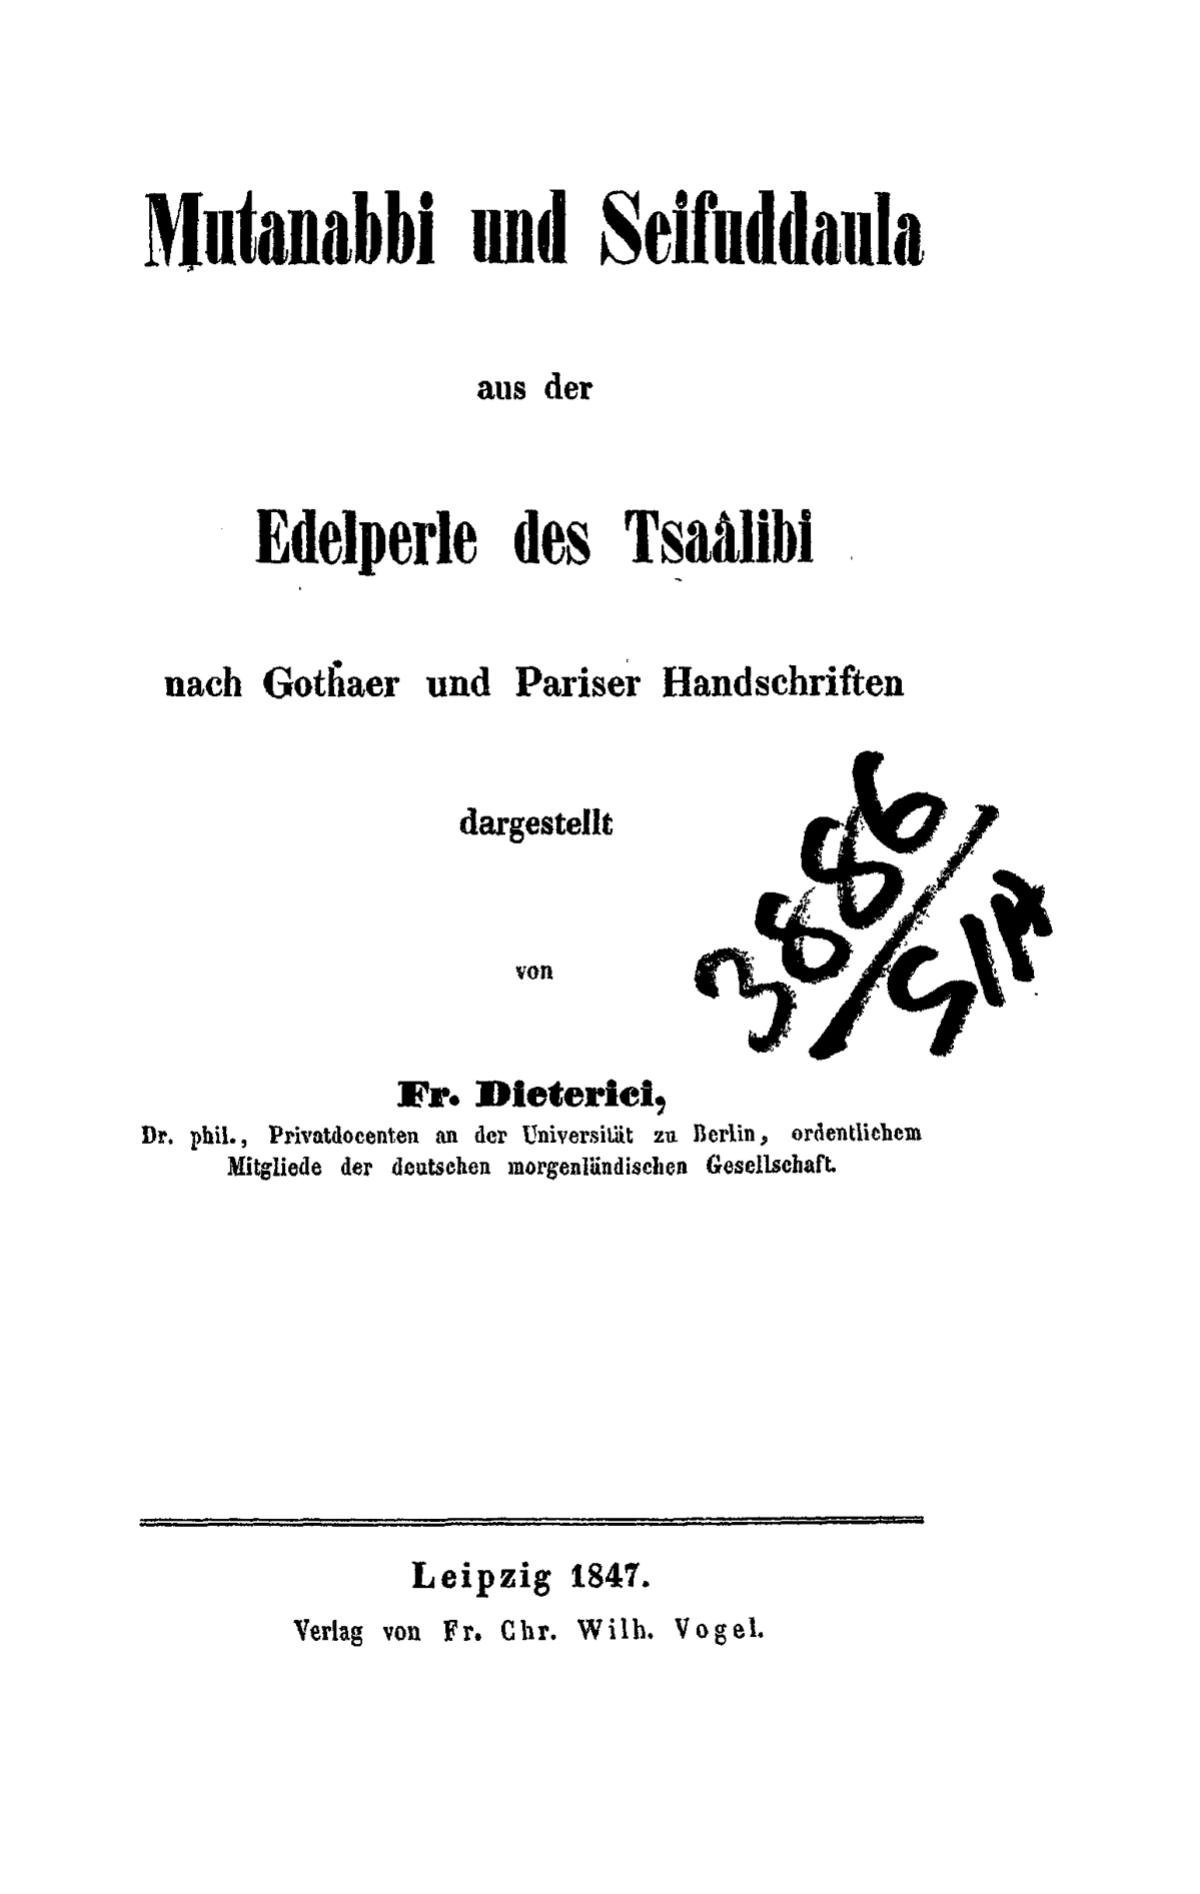 Mutanabbi und Seifuddaula
aus der
Edelperle des Tsaâlibi
nach Gothaer und Pariser Handschriften
dargestellt
3886
von
Fr. Dieterici,
Dr. phil., Privatdocenten an der Universität zu Berlin, ordentlichem
Mitgliede der deutschen morgenländischen Gesellschaft.
Leipzig 1847.
Verlag von Fr. Chr. Wilh. Vogel.